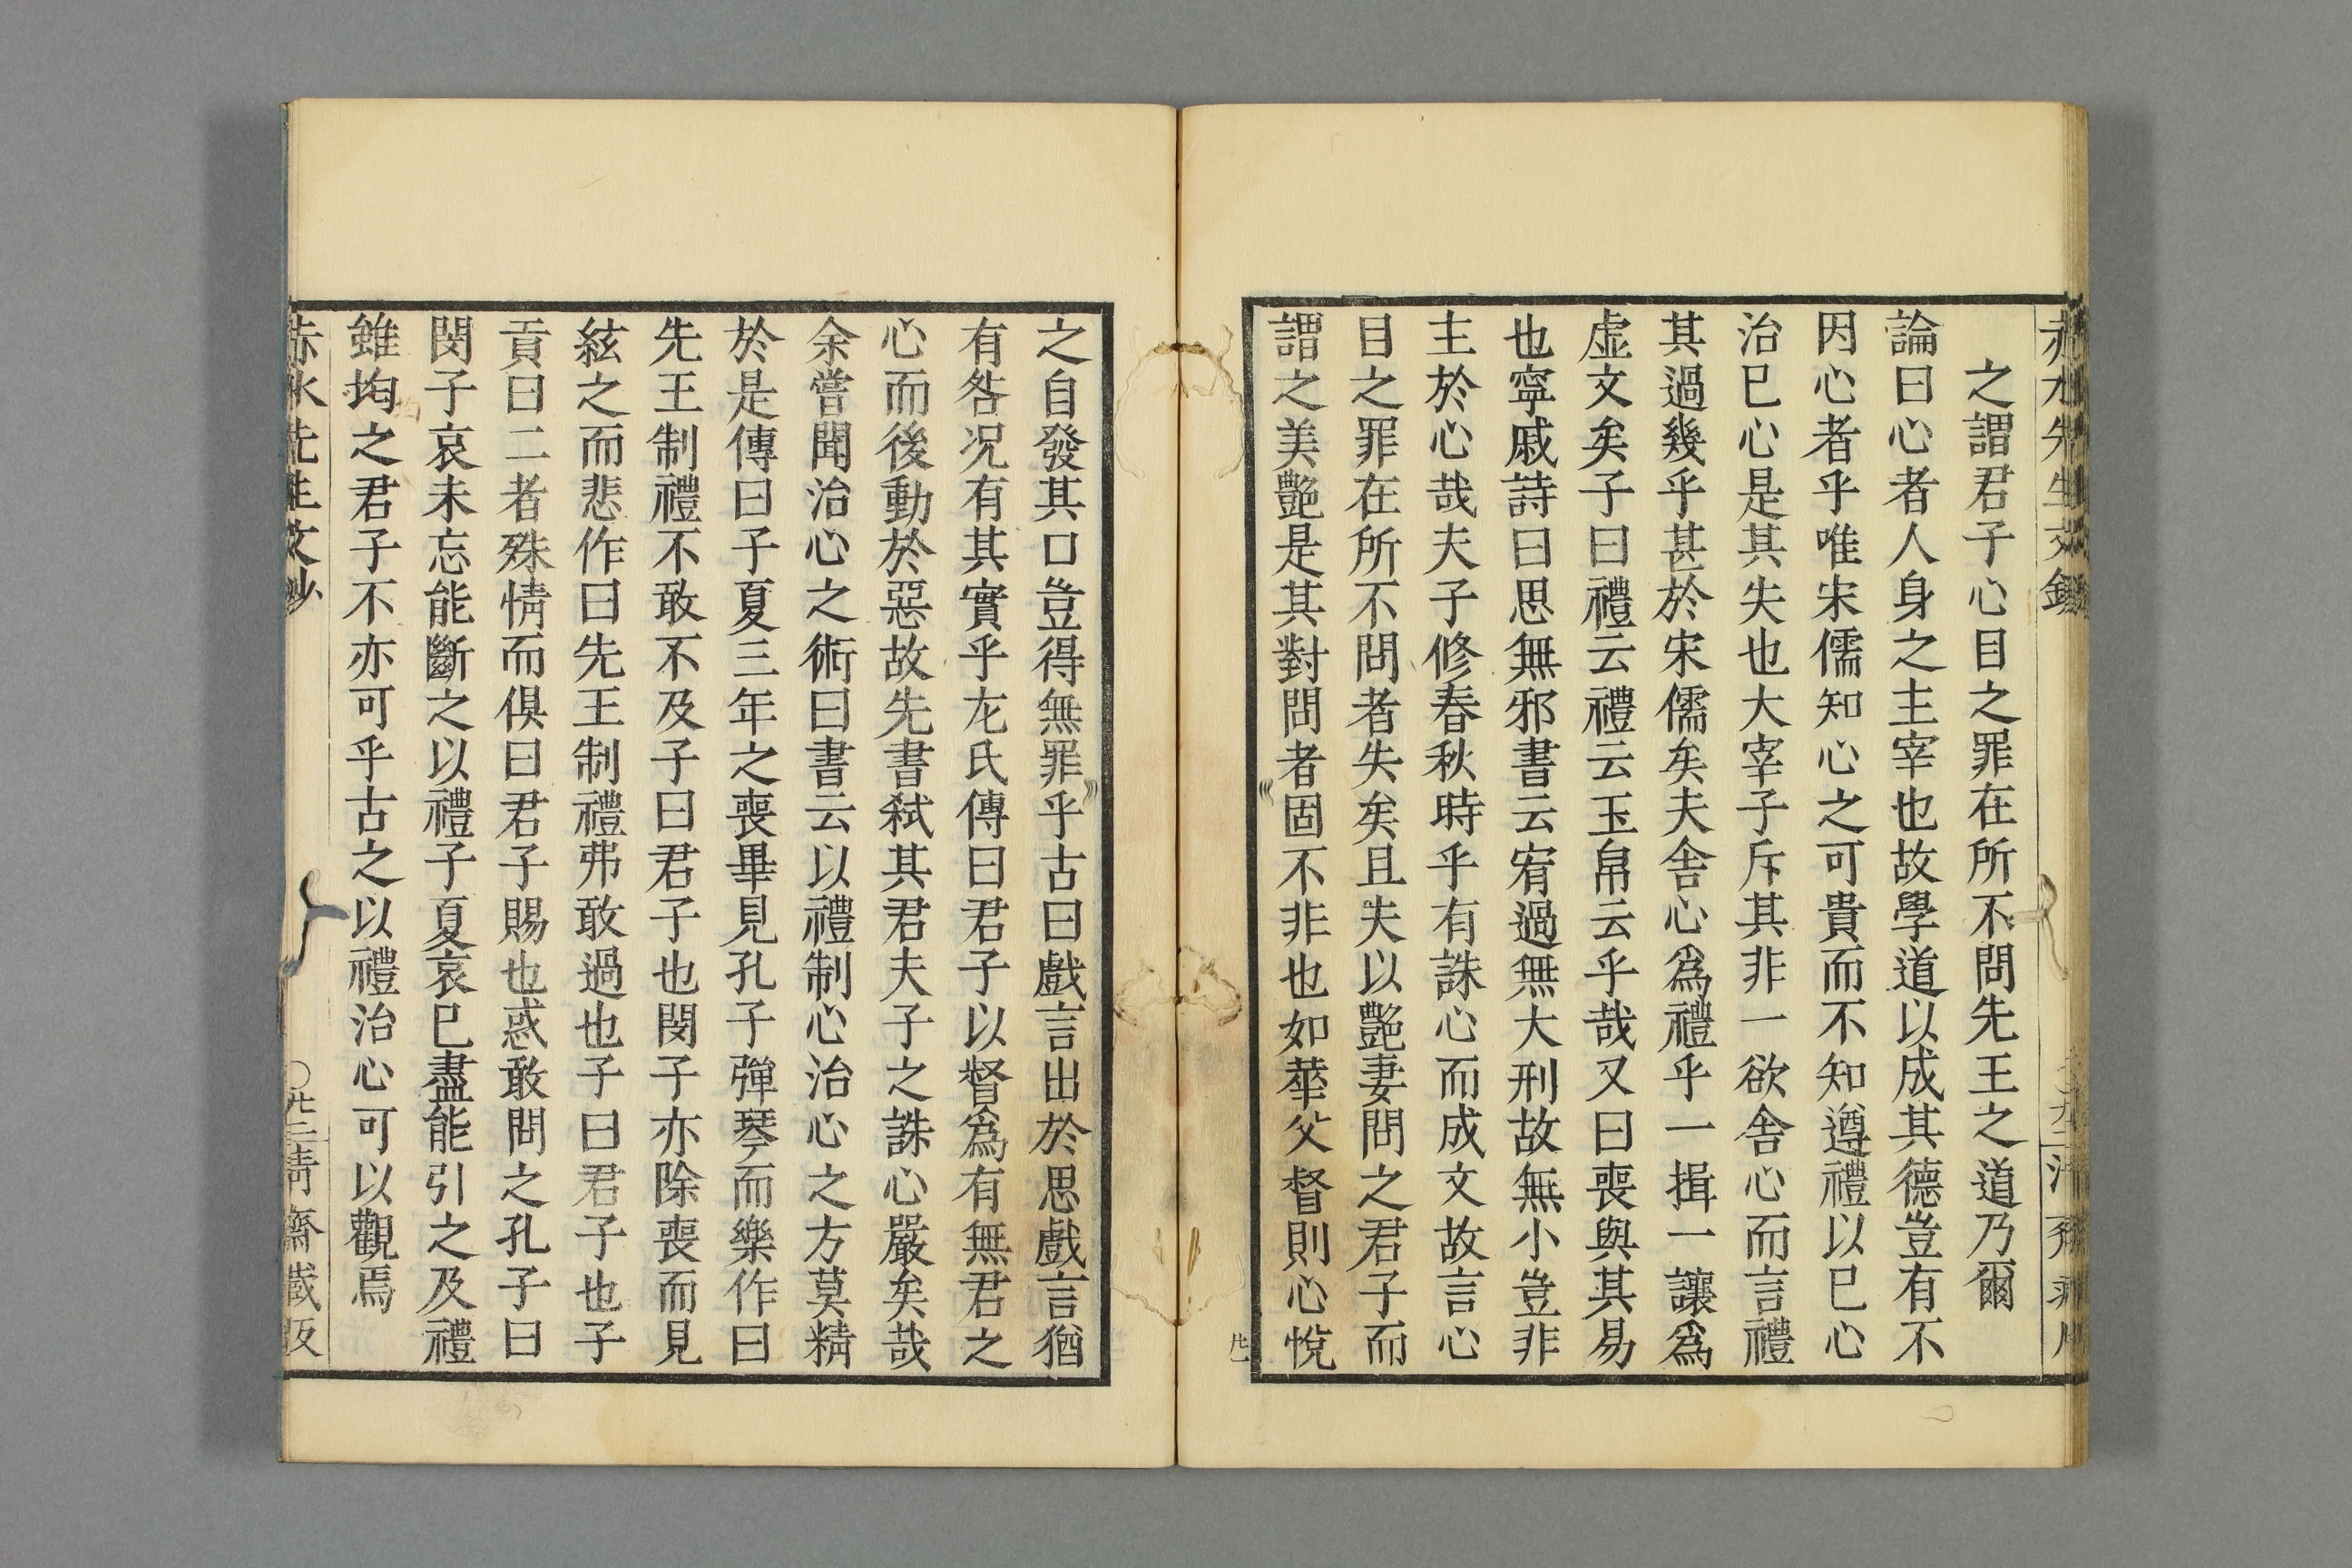 之謂君子心目之罪在所不問先王之道乃爾
論曰心者人身之主宰也故學道以成其德豈有不
因心者乎唯宋儒知心之可貴而不知遵禮以巳心
治巳心是其失也大宰子斥其非一欲舍心而言禮
其過幾乎甚於宋儒矣夫舍心爲禮乎一揖一讓爲
虛文矣子曰禮云禮云玉帛云乎哉又曰喪與其易
也寧戚詩曰思無邪書云宥過無大刑故無小豈非
主於心哉夫子修春秋時乎有誅心而成文故言心
目之罪在所不問者失矣且夫以艷妻問之君子而
謂之美艷是其對問者固不非也如華父督則心悅
之自發其口豈得無罪乎古曰戲言出於思戲言猶
有咎况有其實乎左氏傳曰君子以督爲有無君之
心而後動於惡故先書弑其君夫子之誅心嚴矣哉
余嘗聞治心之術曰書云以禮制心治心之方莫精
於是傳曰子夏三年之喪畢見孔子彈琴而樂作曰
先王制禮不敢不及子曰君子也閔子亦除喪而見
絃之而悲作曰先王制禮弗敢過也子曰君子也子
貢曰二者殊情而俱曰君子賜也惑敢問之孔子曰
閔子哀未忘能斷之以禮子夏哀巳盡能引之及禮
雖均之君子不亦可乎古之以禮治心可以觀焉
赤水先生文鈔
靜齋藏版